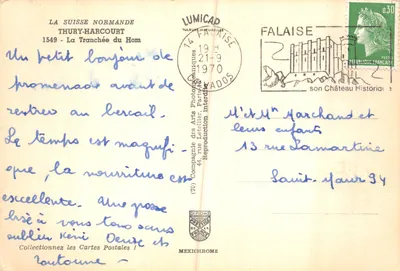 LA SUISSE NORMANDE
THURY-HARCOURT
1549 - La Tranchée du Hom
Un petit bonjour de
promenade avant de
rentrer au bercail.
Le temps est magnifi-
que, la nourriture est
excellente. Une grosse
bise à vous tous sans
oublier
et
Collectionnez les Cartes Postales !
LUMICAP
(72) Compagnie des Arts Photomécaniques
44, rue Letellier, Paris
Reproduction interdite
MEXICHROME
14 FALAISE
19 H
21-9
1970
CALVADOS
FALAISE
son Château Historique
0,30
Mr et Mme Marchand et
leurs enfants
13 rue Lamartine
Saint-Maur 94